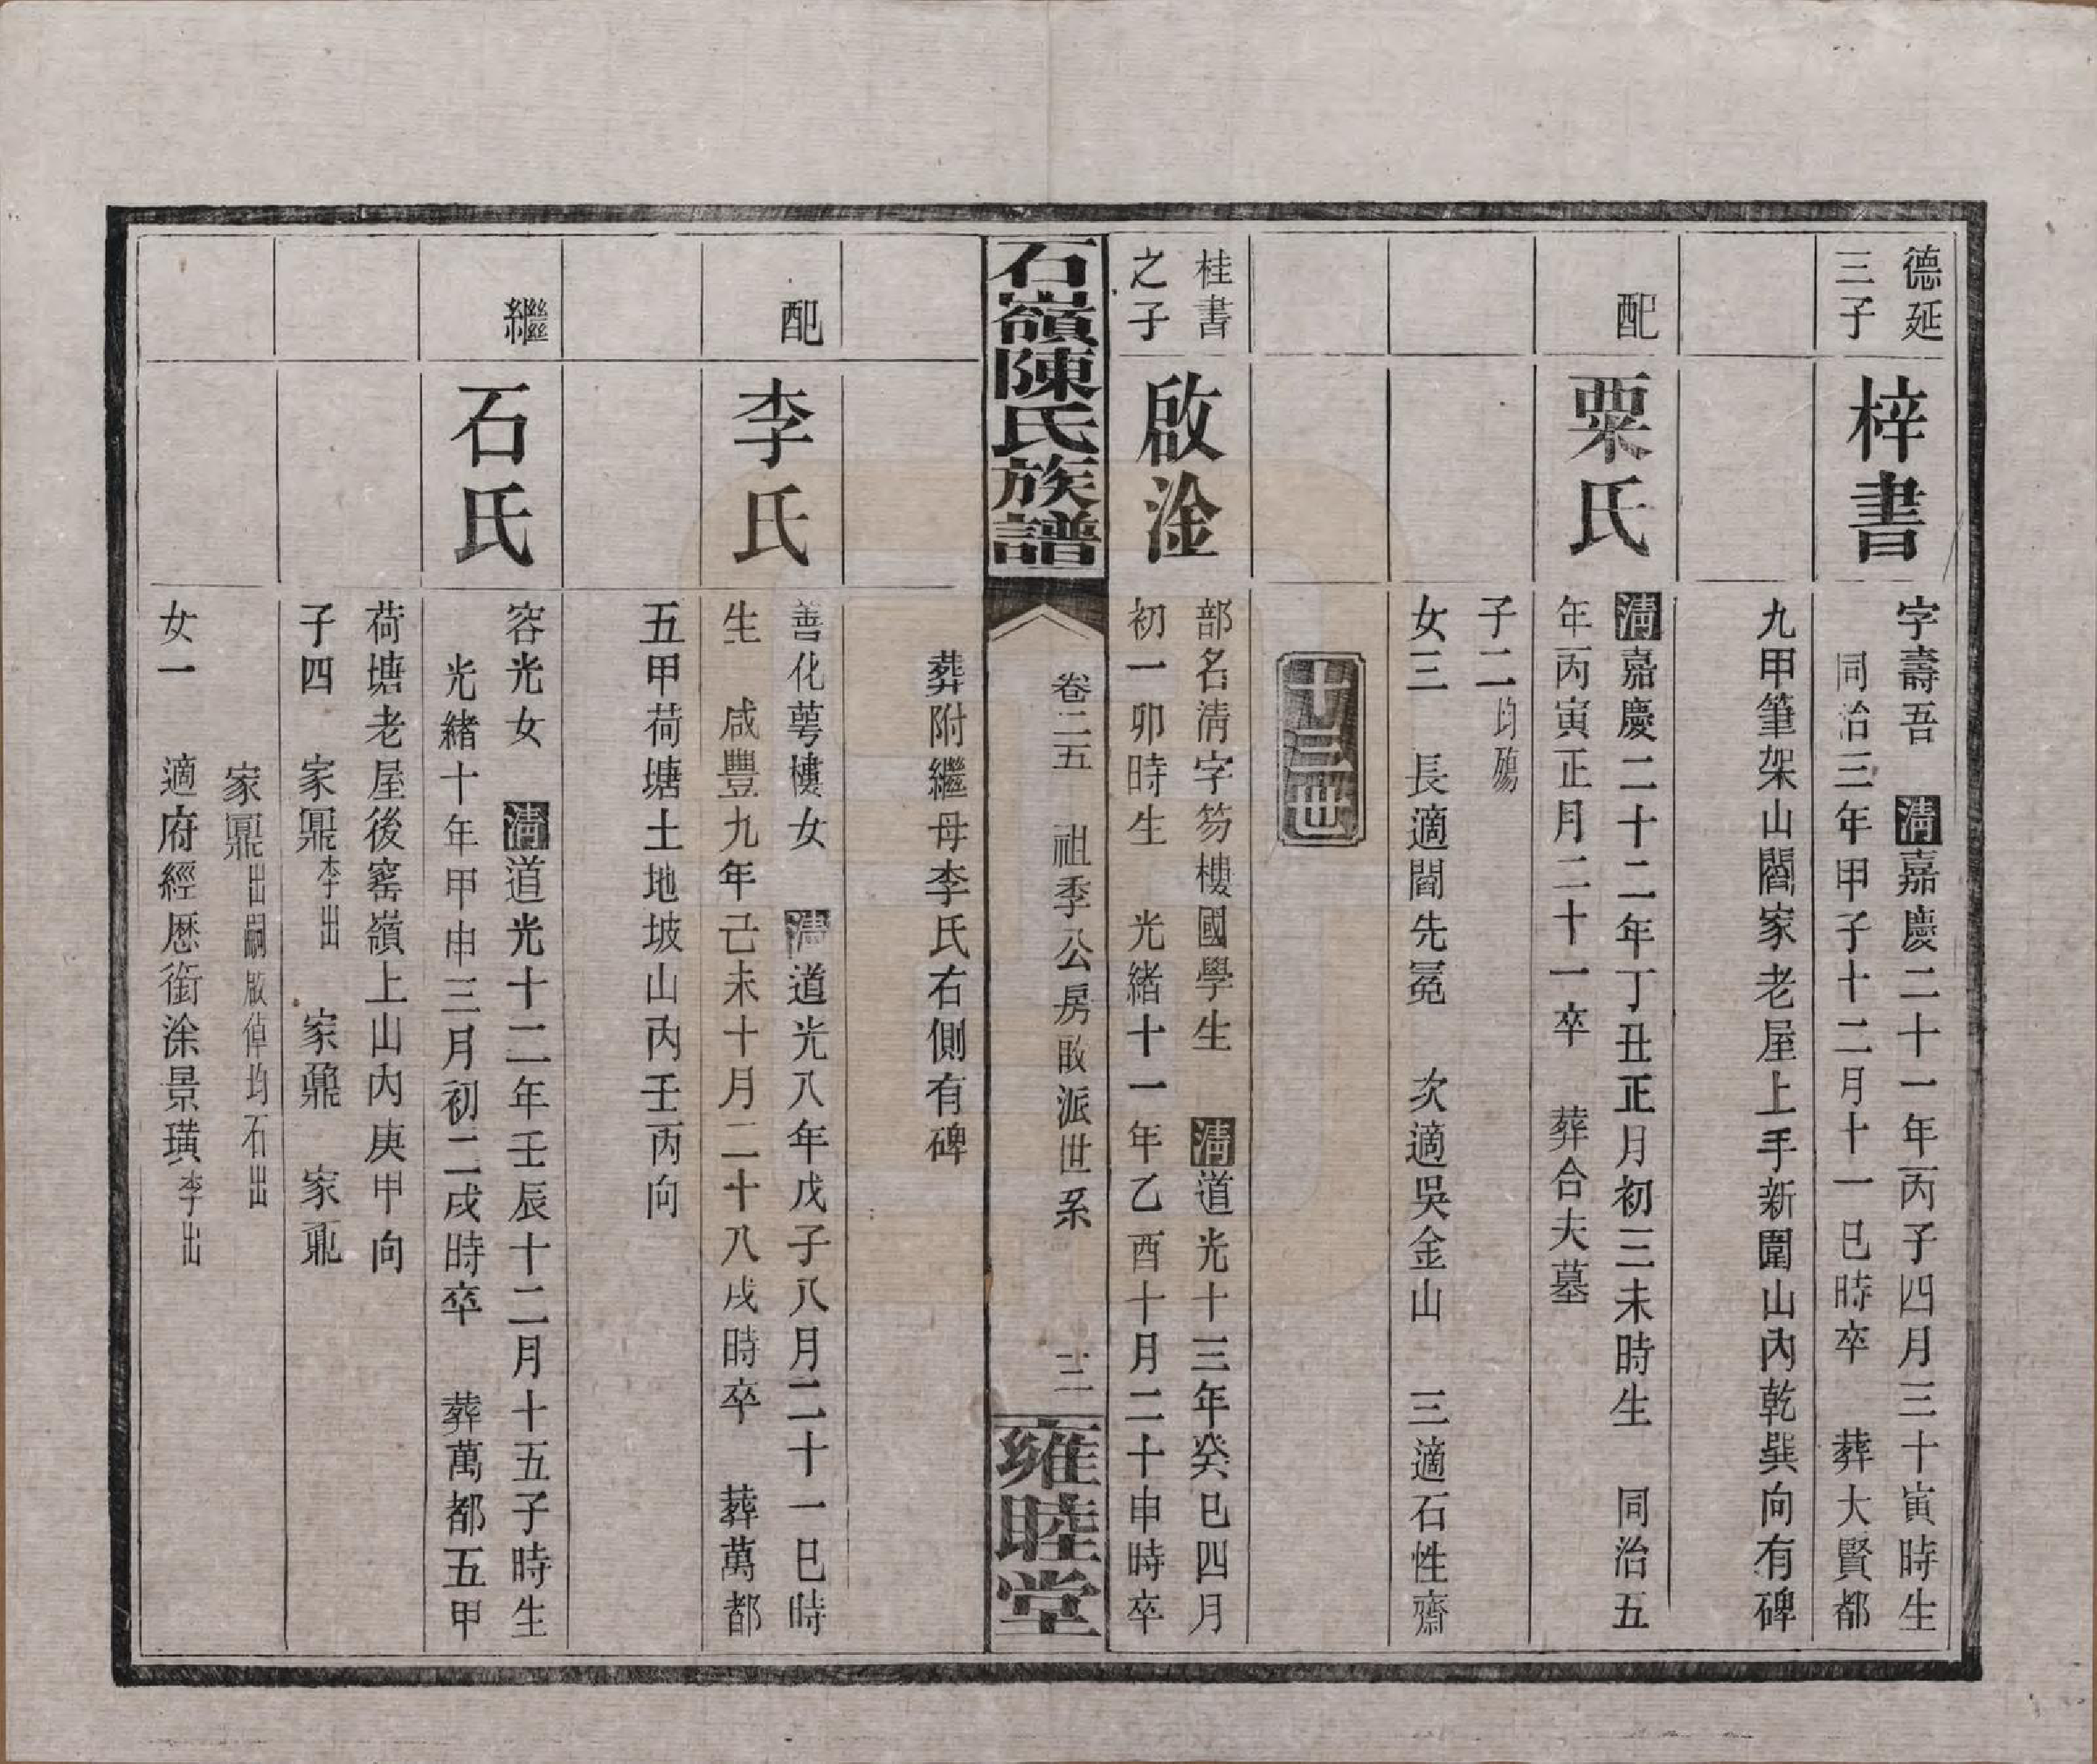 德延
三子
梓書
字壽吾 清嘉慶二十一年丙子四月三十寅時生
同治三年甲子十二月十一巳時卒 葬大賢都
九甲筆架山閻家老屋上手新圍山內乾巽向有碑
配
粟氏
清嘉慶二十二年丁丑正月初三未時生 同治五
年丙寅正月二十一卒 葬合夫墓
子二均殤
女三 長適閻先冕 次適吳金山 三適石性齋
十三世
桂書
之子
啟淦
部名清字笏樓國學生 清道光十三年癸巳四月
初一卯時生 光緒十一年乙酉十月二十申時卒
石嶺陳氏族譜
卷二五 祖季公房敃派世系
三
雍睦堂
葬附繼母李氏右側有碑
配
李氏
善化萼樓女 清道光八年戊子八月二十一巳時
生 咸豐九年己未十月二十八戌時卒 葬萬都
五甲荷塘土地坡山內壬丙向
繼
石氏
容光女 清道光十二年壬辰十二月十五子時生
光緒十年甲申三月初二戌時卒 葬萬都五甲
荷塘老屋後窰嶺上山內庚甲向
子四 家鼎李出 家鼐 家鼏
家鼎出嗣啟倬均石出
女一 適府經歷銜涂景璜李出